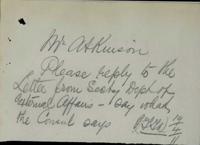 Mr Atkinson
Please reply to the
Letter from Secty Dept of
External Affairs - say what
the Consul says
14/4